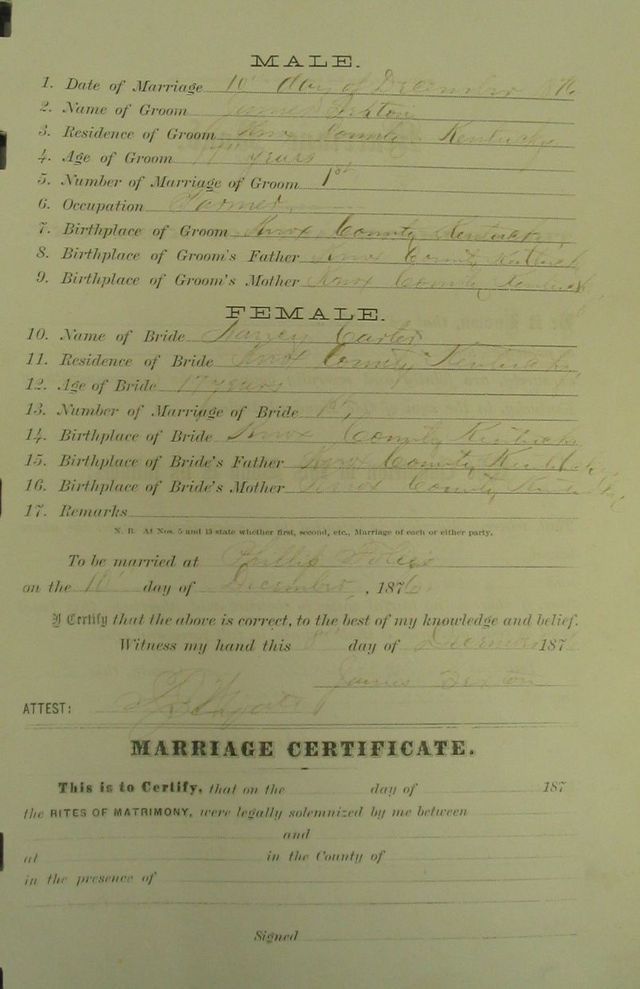 MALE.
1. Date of Marriage 10th day of December 1876
2. Name of Groom James Sexton
3. Residence of Groom Knox County Kentucky
4. Age of Groom years
5. Number of Marriage of Groom 1st
6. Occupation Farmer
7. Birthplace of Groom Knox County Kentucky
8. Birthplace of Groom's Father Knox County Kentucky
9. Birthplace of Groom's Mother Knox County Kentucky
FEMALE.
10. Name of Bride Nancy Carter
11. Residence of Bride Knox County Kentucky
12. Age of Bride 17 years
13. Number of Marriage of Bride 1st
14. Birthplace of Bride Knox County Kentucky
15. Birthplace of Bride's Father Knox County Kentucky
16. Birthplace of Bride's Mother Knox County Kentucky
17. Remarks
N. B. At Nos. 5 and 13 state whether first, second, etc., Marriage of each or either party.
To be married at
on the 10th day of December, 1876
I Certify that the above is correct, to the best of my knowledge and belief.
Witness my hand this 8th day of December 1876
James Sexton
ATTEST:
MARRIAGE CERTIFICATE.
This is to Certify, that on the day of 187
the RITES OF MATRIMONY, were legally solemnized by me between
and
at in the County of
in the presence of
Signed